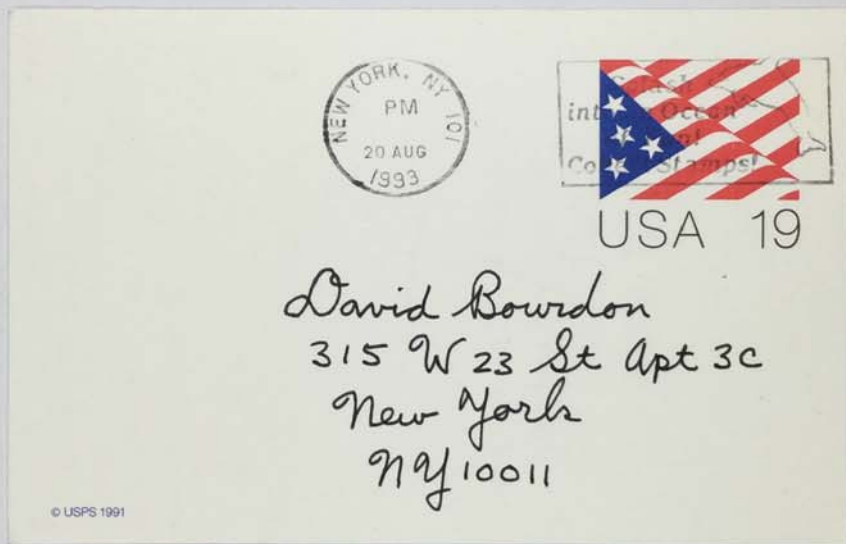 NEW YORK, NY 101
PM
20 AUG
1993
Splash
into Ocean
Stamps!
USA 19
David Bourdon
315 W 23 St Apt 3C
New York
NY 10011
© USPS 1991